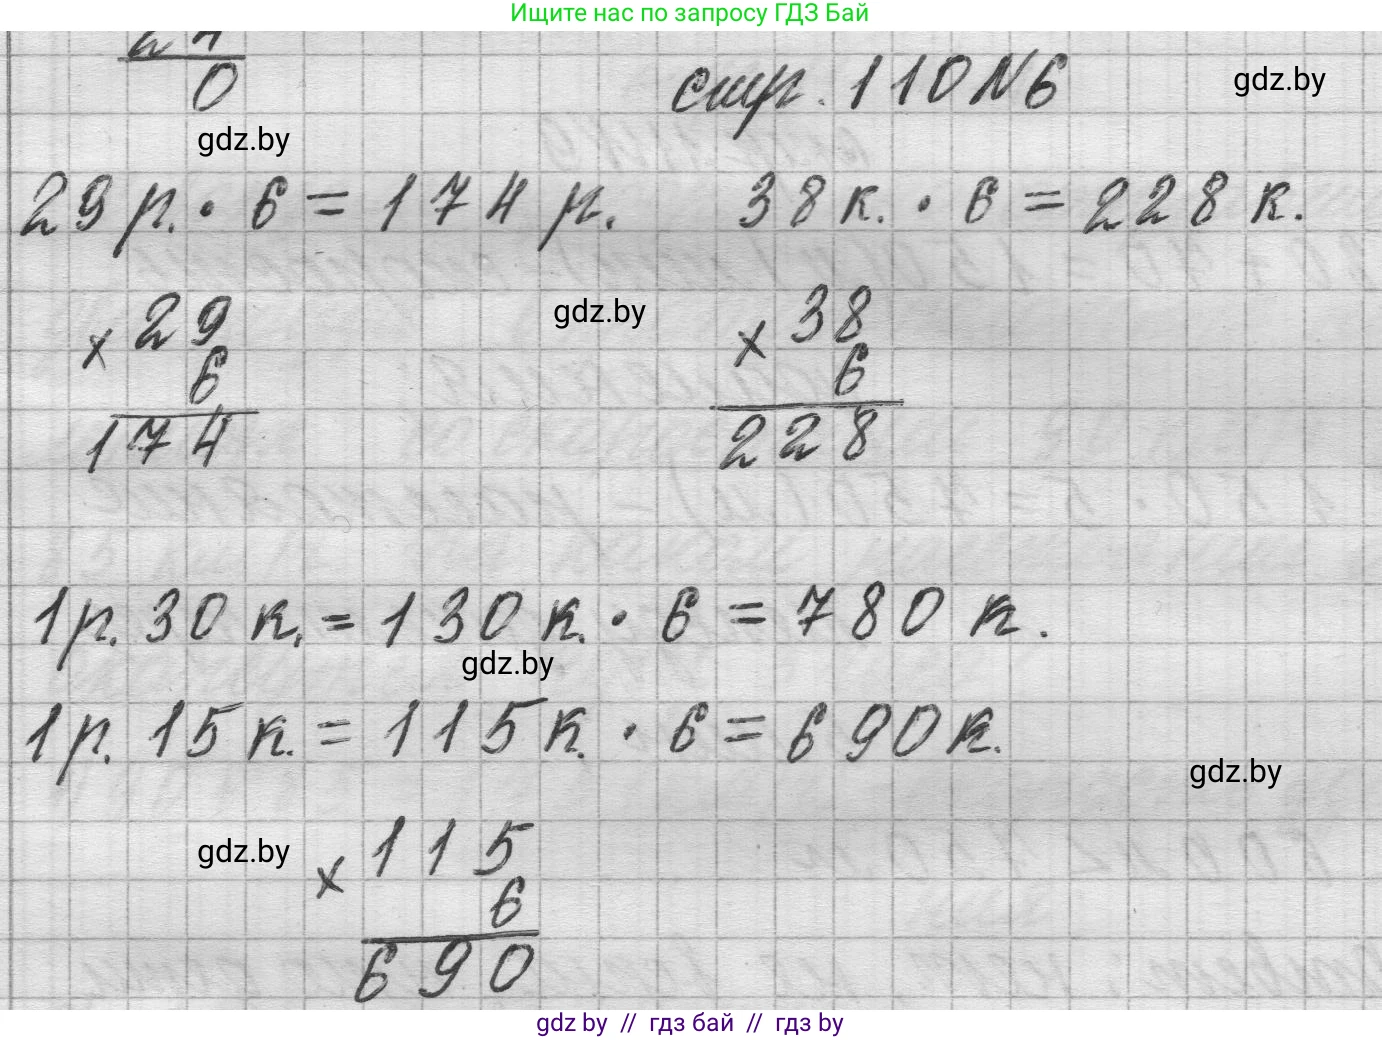 Ищите нас по запросу ГДЗ Бай
0
стр. 110 N6
gdz.by
gdz.by
29 р. · 6 = 174 р. 38 к. · 6 = 228 к.
gdz.by
× 29
6
174
× 38
6
228
1 р. 30 к. = 130 к. · 6 = 780 к.
gdz.by
1 р. 15 к. = 115 к. · 6 = 690 к.
gdz.by
gdz.by
× 115
6
690
gdz by // гдз бай // гдз by